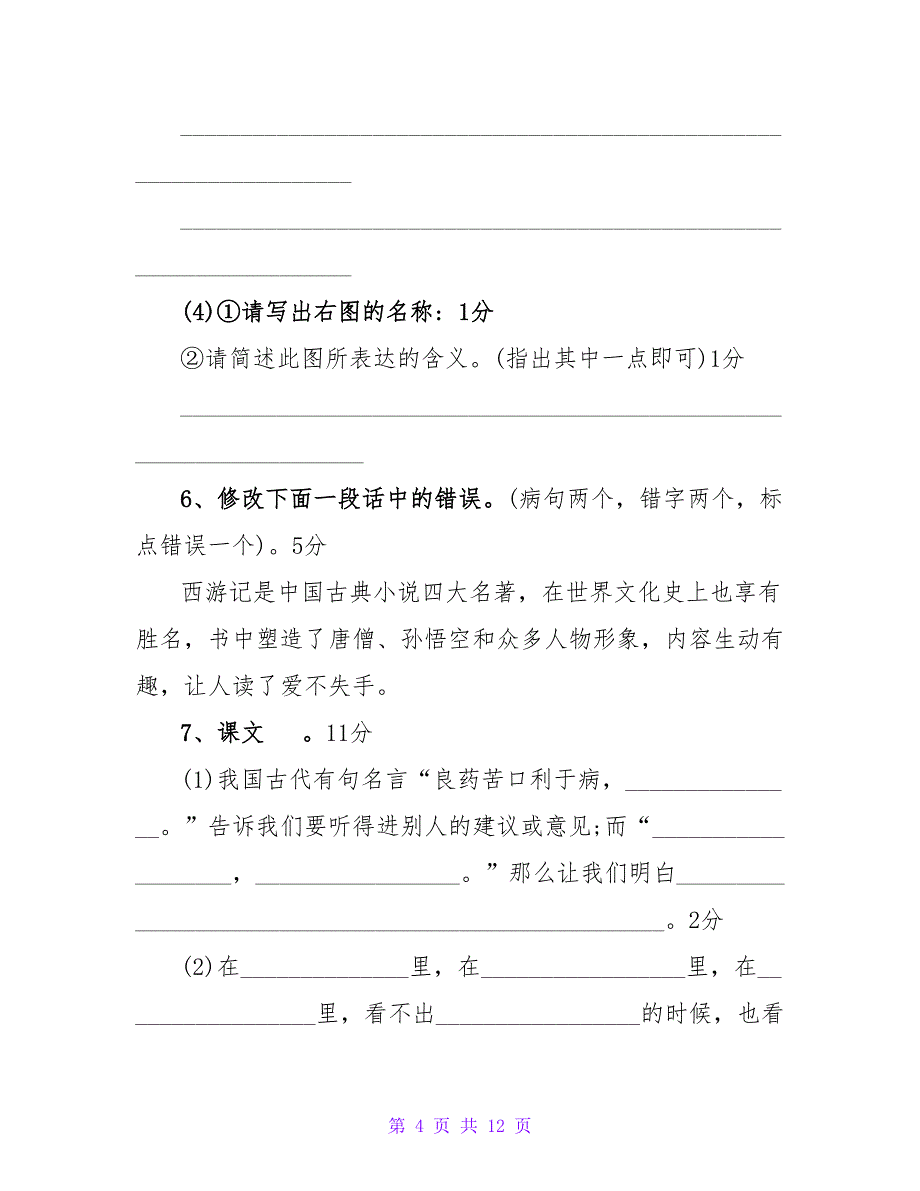 __________________________________________________
__________________
__________________________________________________
__________________
(4)①请写出右图的名称：1分
②请简述此图所表达的含义。(指出其中一点即可)1分
__________________________________________________
___________________
6、修改下面一段话中的错误。(病句两个，错字两个，标
点错误一个)。5分
西游记是中国古典小说四大名著，在世界文化史上也享有
胜名，书中塑造了唐僧、孙悟空和众多人物形象，内容生动有
趣，让人读了爱不失手。
7、课文 。11分
(1)我国古代有句名言“良药苦口利于病，_____________
__。”告诉我们要听得进别人的建议或意见;而“___________
________，_________________。”那么让我们明白_________
____________________________________________。2分
(2)在______________里，在_________________里，在__
_______________里，看不出_________________的时候，也看
第 4 页 共 12 页